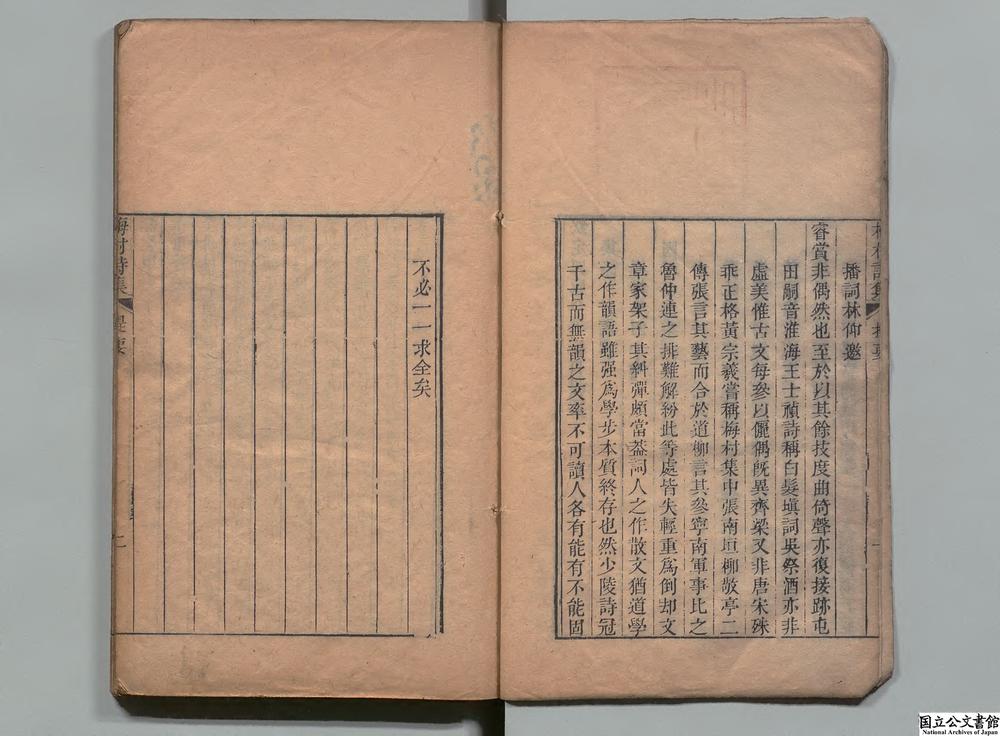 播詞林仰邀
睿賞非偶然也至於以其餘技度曲倚聲亦復接跡屯
田嗣音淮海王士禎詩稱白髮塡詞吳祭酒亦非
虛美惟古文每參以儷偶旣異齊梁又非唐宋殊
乖正格黃宗羲嘗稱梅村集中張南垣柳敬亭二
傳張言其藝而合於道柳言其參寧南軍事比之
魯仲連之排難解紛此等處皆失輕重爲倒却文
章家架子其糾彈頗當葢詞人之作散文猶道學
之作韻語雖强爲學步本質終存也然少陵詩冠
千古而無韻之文率不可讀人各有能有不能固
不必一一求全矣
梅村詩集
提要
二
国立公文書館
National Archives of Japan